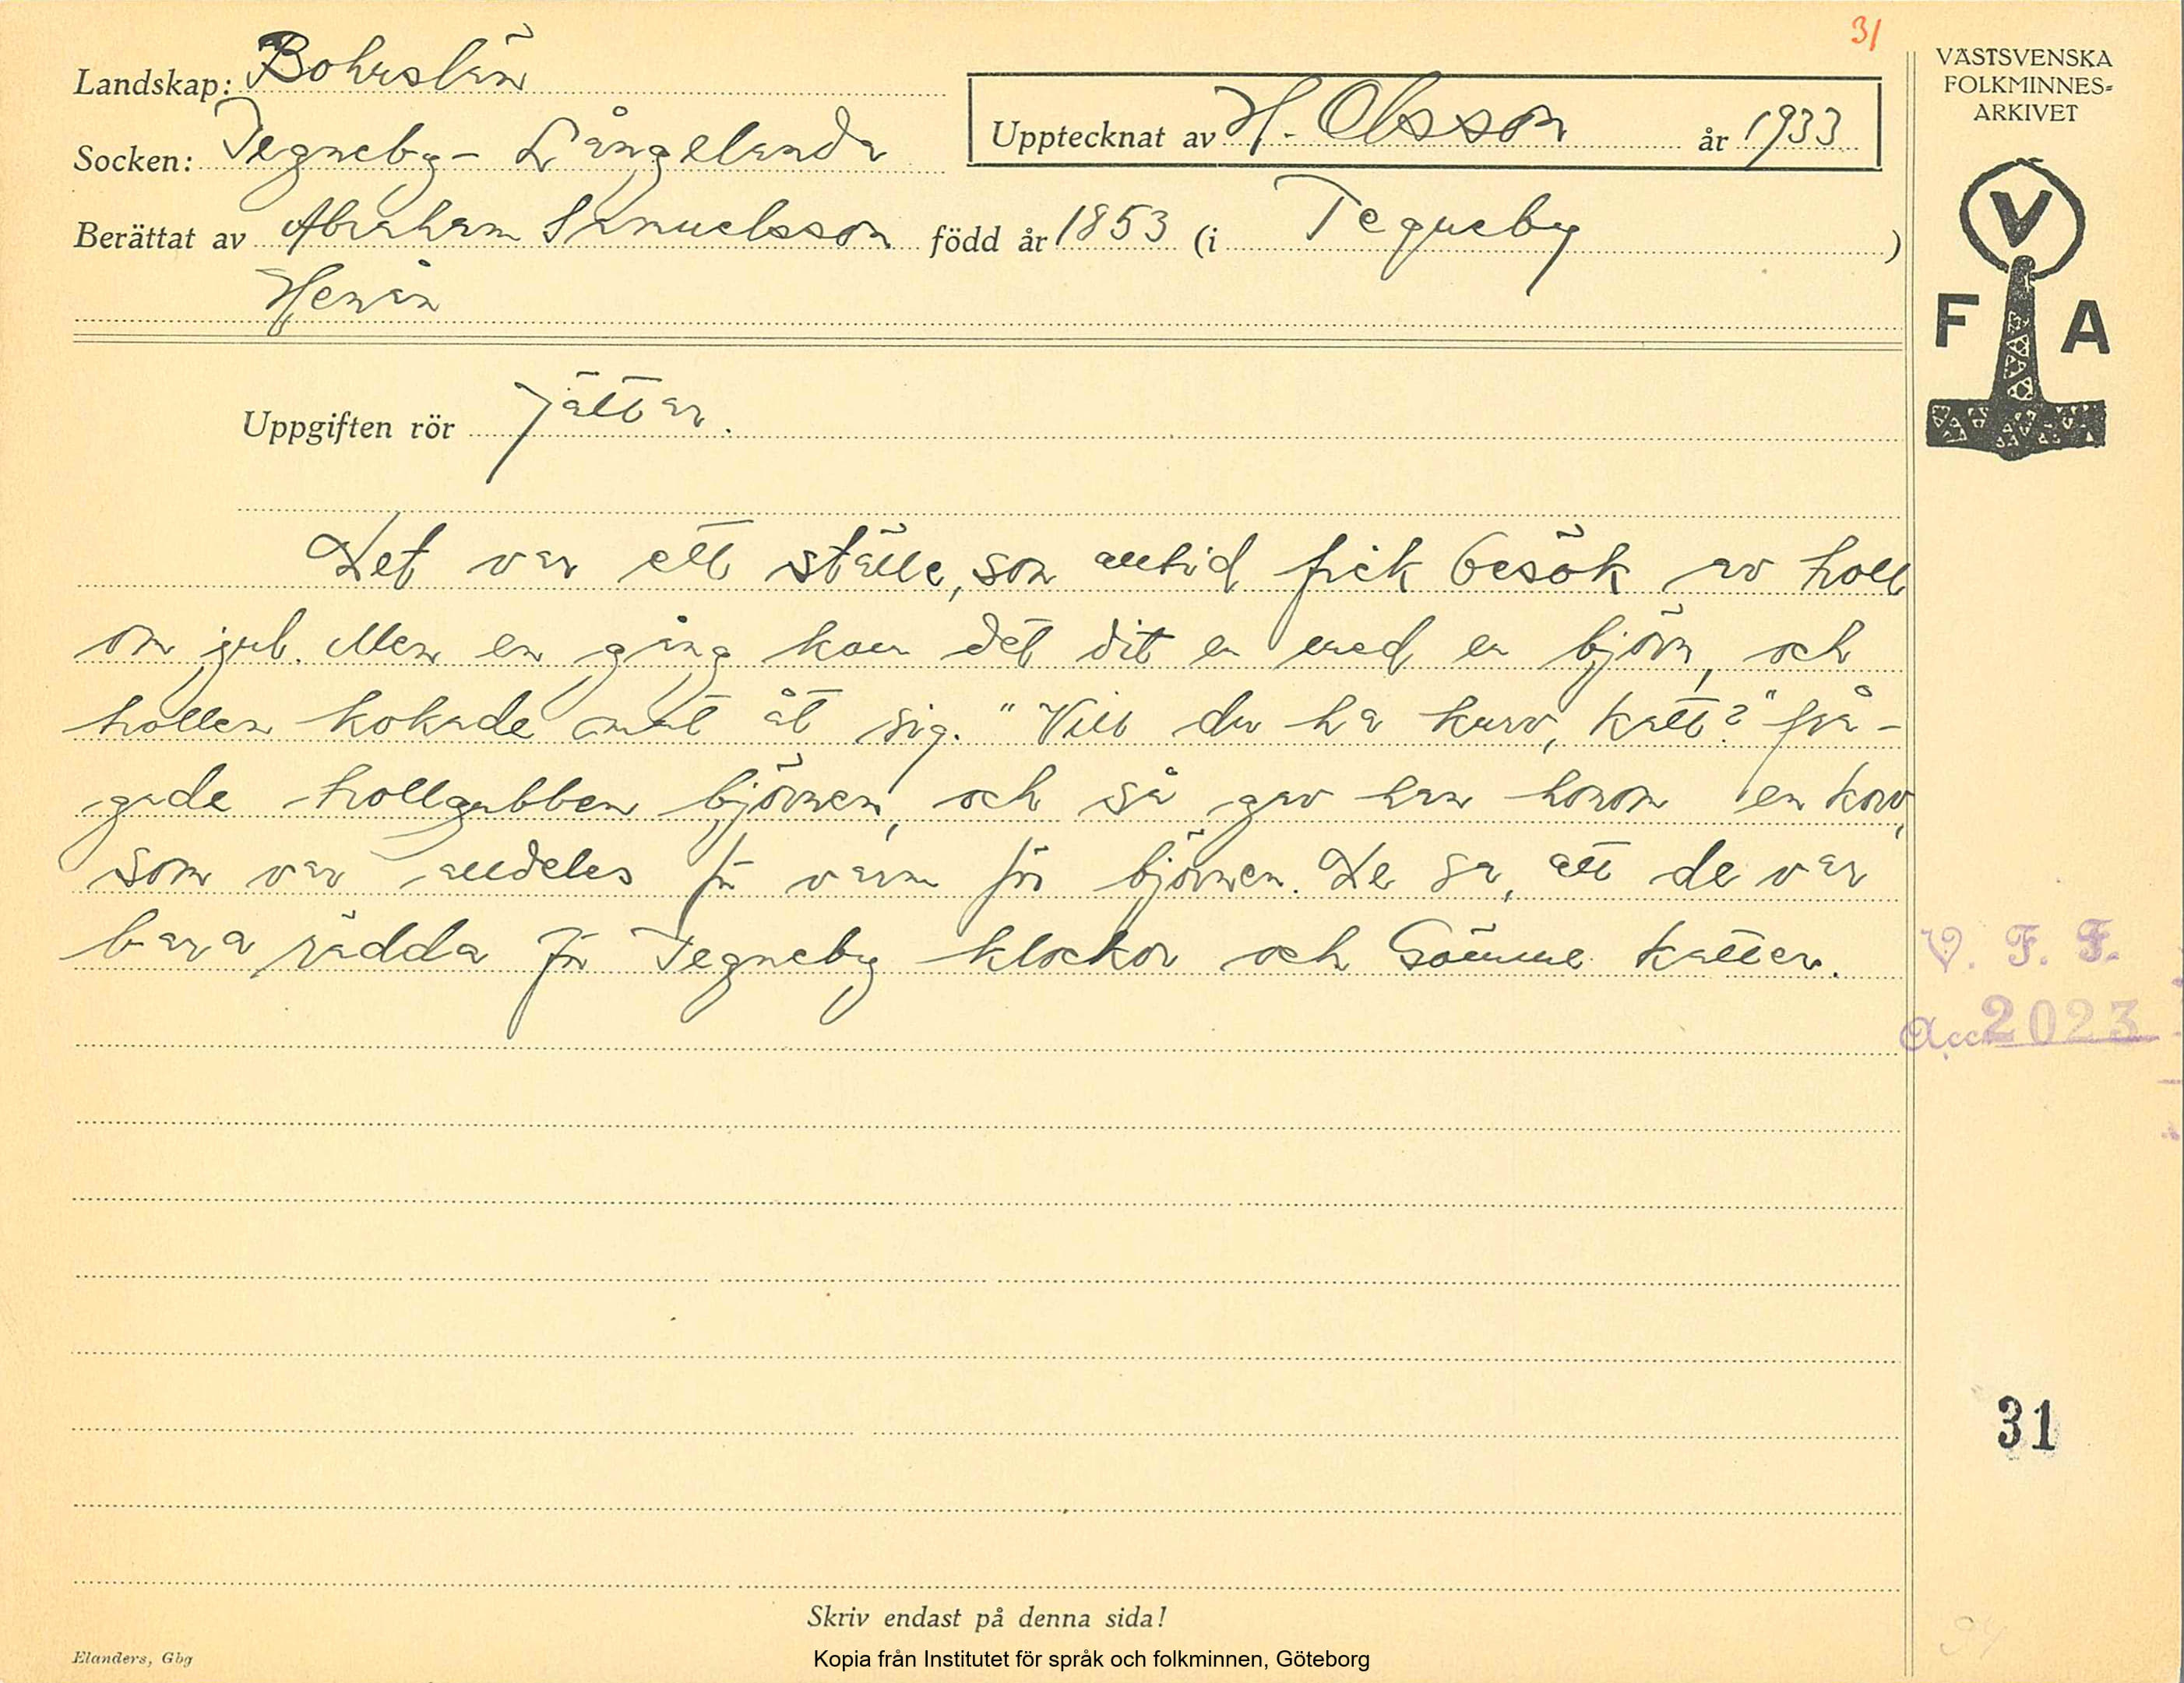 31
Landskap: Bohuslän
VÄSTSVENSKA
FOLKMINNES-
ARKIVET
Upptecknat av H. Olsson år 1933
Socken: Tegneby - Långelanda
Berättat av Abraham Samuelsson född år 1853 (i Tegneby)
Henån
V
F A
Uppgiften rör Jättar.
Det var ett ställe, som alltid fick besök av troll
om jul. Men en gång kom det dit en med en björn, och
trollen kokade mat åt sig. "Vill du ha kurv, katt?" frå-
gade trollgubben björnen, och så gav han honom en korv,
som var alldeles för varm för björnen. De sa, att de var
bara rädda för Tegneby klockor och Sömme katter.
V. F. F.
Acc 2023
31
Skriv endast på denna sida!
Elanders, Gbg
Kopia från Institutet för språk och folkminnen, Göteborg